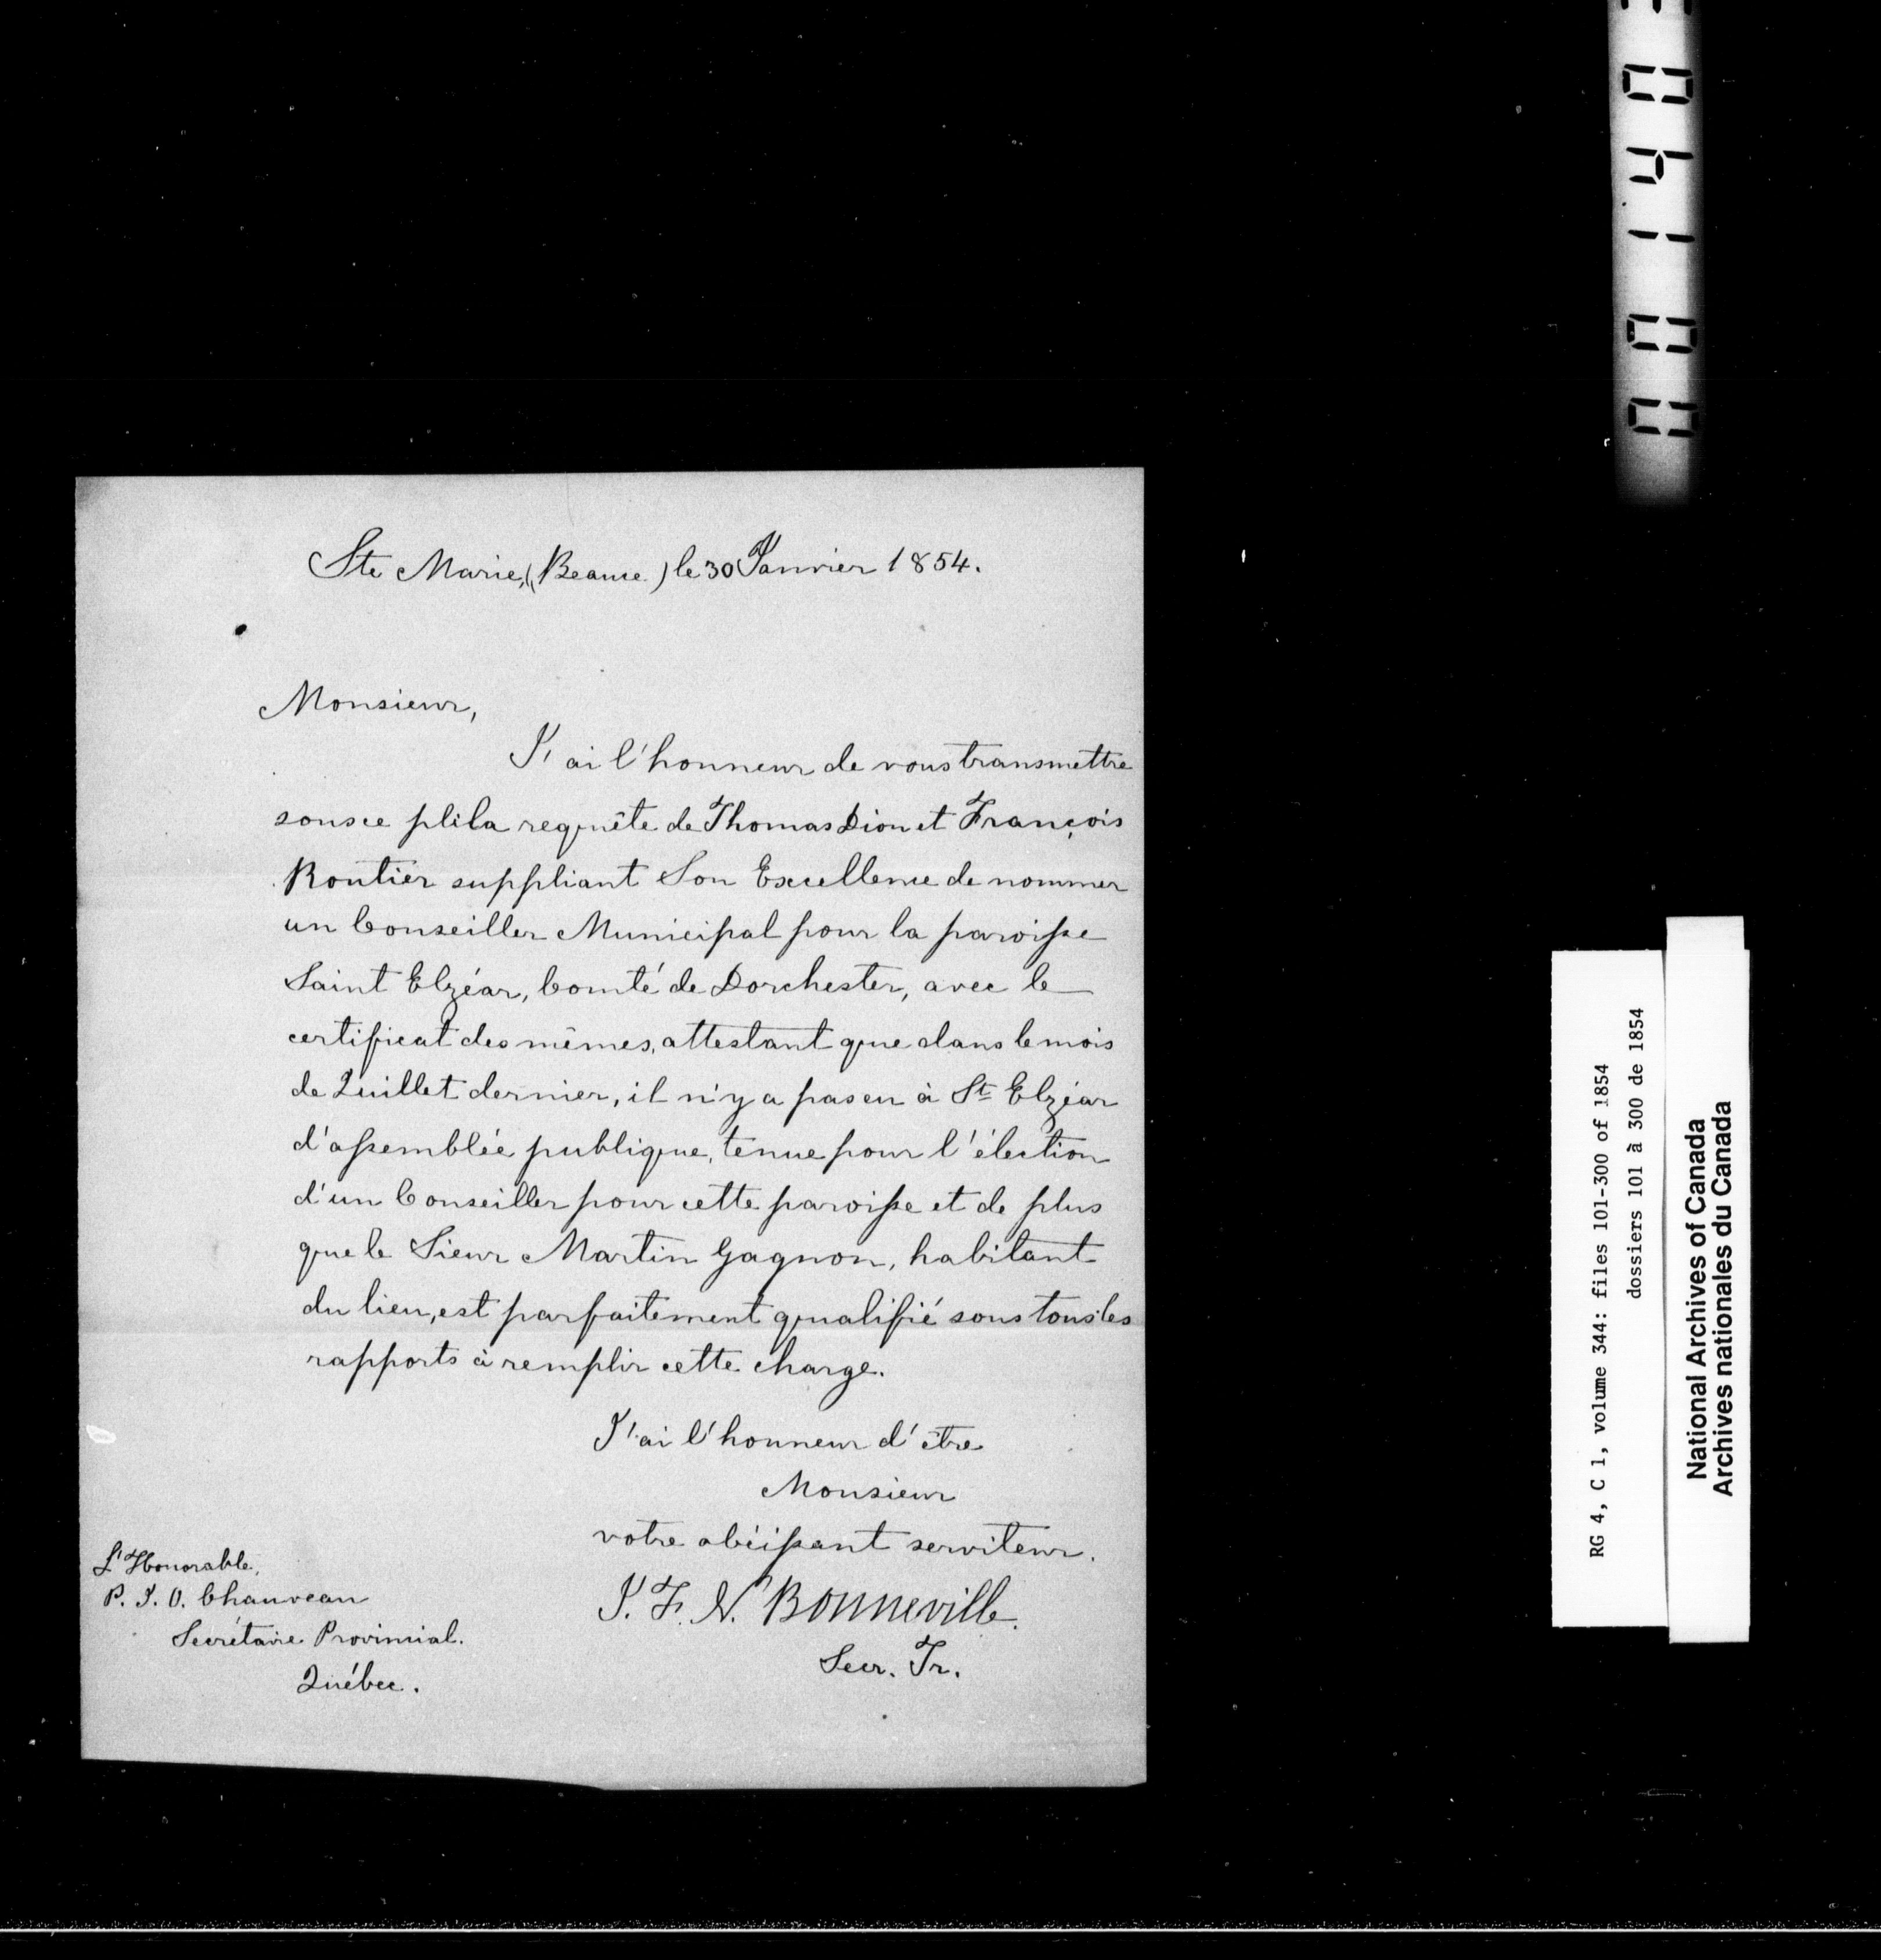 Ste Marie, (Beauce) le 30 Janvier 1854.
Monsieur,
J'ai l'honneur de vous transmettre
sous ce pli la requête de Thomas Dion et François
Routier suppliant Son Excellence de nommer
un Conseiller Municipal pour la paroisse
Saint Elzéar, Comté de Dorchester, avec le
certificat des mêmes, attestant que dans le mois
de Juillet dernier, il n'y a pas eu à St Elzéar
d'assemblée publique, tenue pour l'élection
d'un Conseiller pour cette paroisse et de plus
que le Sieur Martin Gagnon, habitant
du lieu, est parfaitement qualifié sous tous les
rapports à remplir cette charge.
J'ai l'honneur d'être
Monsieur
votre obéissant serviteur.
J. F. N. Bonneville.
Secr. Tr.
L'Honorable,
P. J. O. Chauveau
Secrétaire Provincial.
Québec.
RG 4, C 1, volume 344: files 101-300 of 1854
dossiers 101 à 300 de 1854
National Archives of Canada
Archives nationales du Canada